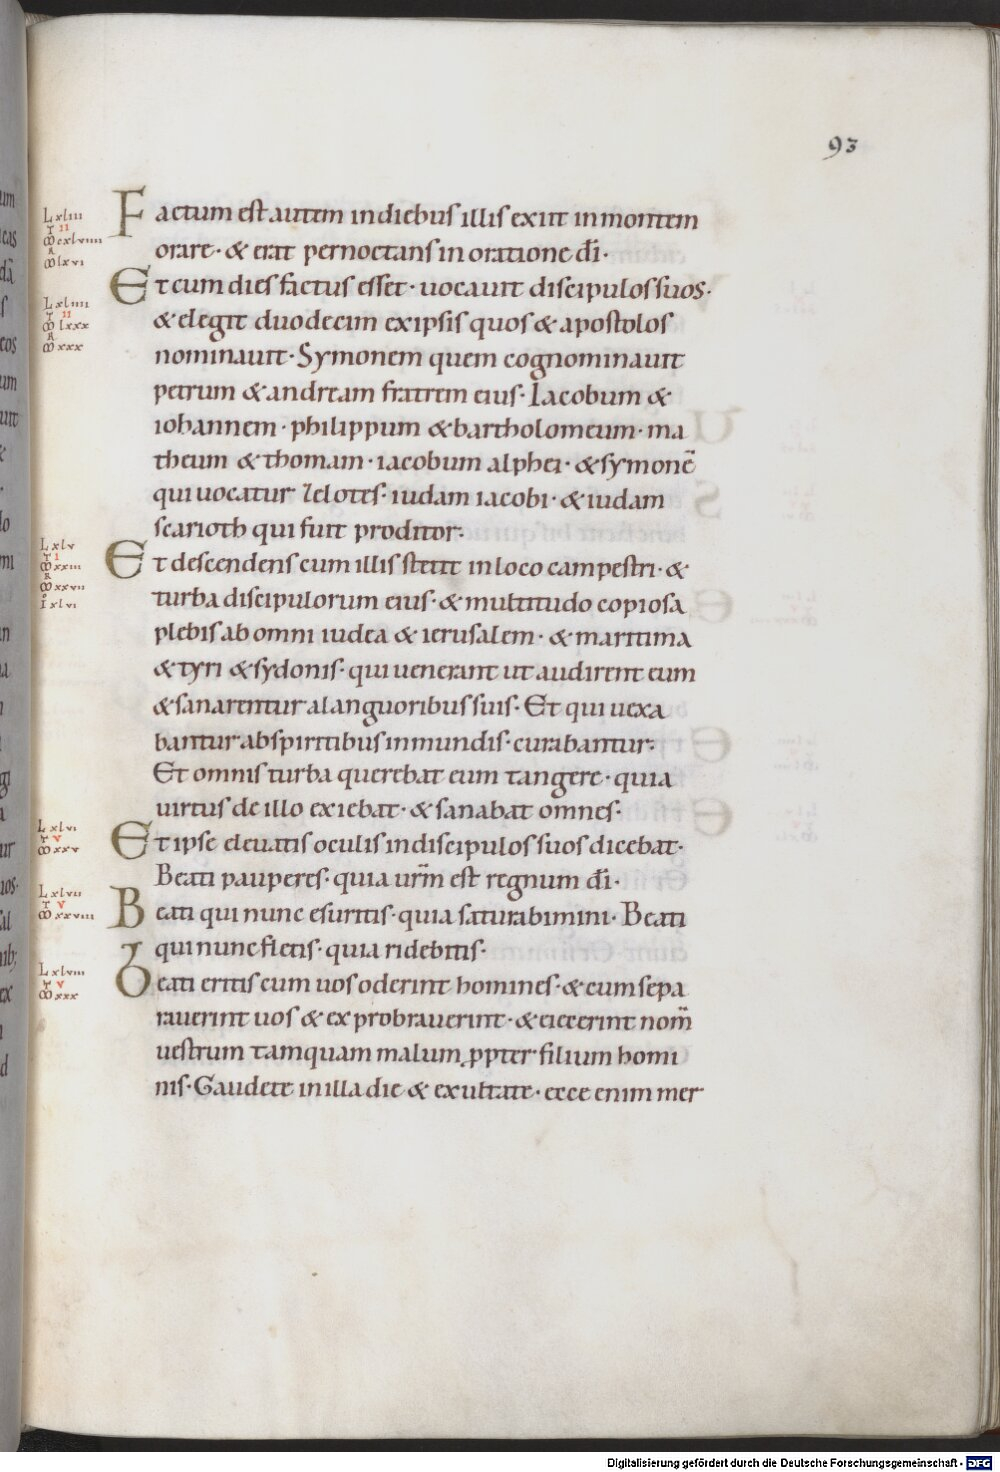 93
L xliii
T II
M cxlviiii
R
M lxvi
Factum est autem in diebus illis exiit in montem
orare· & erat pernoctans in oratione dī·
Et cum dies factus esset· uocauit discipulos suos·
L xliiii
T II
M lxxx
R
M xxx
& elegit duodecim ex ipsis quos & apostolos
nominauit· Symonem quem cognominauit
petrum & andream fratrem eius· Iacobum &
iohannem· philippum & bartholomeum· ma
theum & thomam· iacobum alphei· & symonē
qui uocatur zelotes· iudam iacobi· & iudam
scarioth qui fuit proditor·
L xlv
T I
M xxiii
R
M xxvii
I xlvi
Et descendens cum illis stetit in loco campestri· &
turba discipulorum eius· & multitudo copiosa
plebis ab omni iudea & ierusalem· & maritima
& tyri & sydonis· qui uenerant ut audirent eum
& sanarentur a languoribus suis· Et qui uexa
bantur ab spiritibus inmundis· curabantur·
Et omnis turba querebat eum tangere· quia
uirtus de illo exiebat· & sanabat omnes·
L xlvi
T V
M xxv
Et ipse eleuatis oculis in discipulos suos dicebat·
Beati pauperes· quia ur̄m est regnum dī·
L xlvii
T V
M xxviii
Beati qui nunc esuritis· quia saturabimini· Beati
qui nunc fletis· quia ridebitis·
L xlviii
T V
M xxx
Beati eritis cum uos oderint homines· & cum sepa
rauerint uos & exprobrauerint· & eiecerint nom̄
uestrum tamquam malum ꝓpter filium homi
nis· Gaudete in illa die & exultate· ecce enim mer
Digitalisierung gefördert durch die Deutsche Forschungsgemeinschaft - DFG